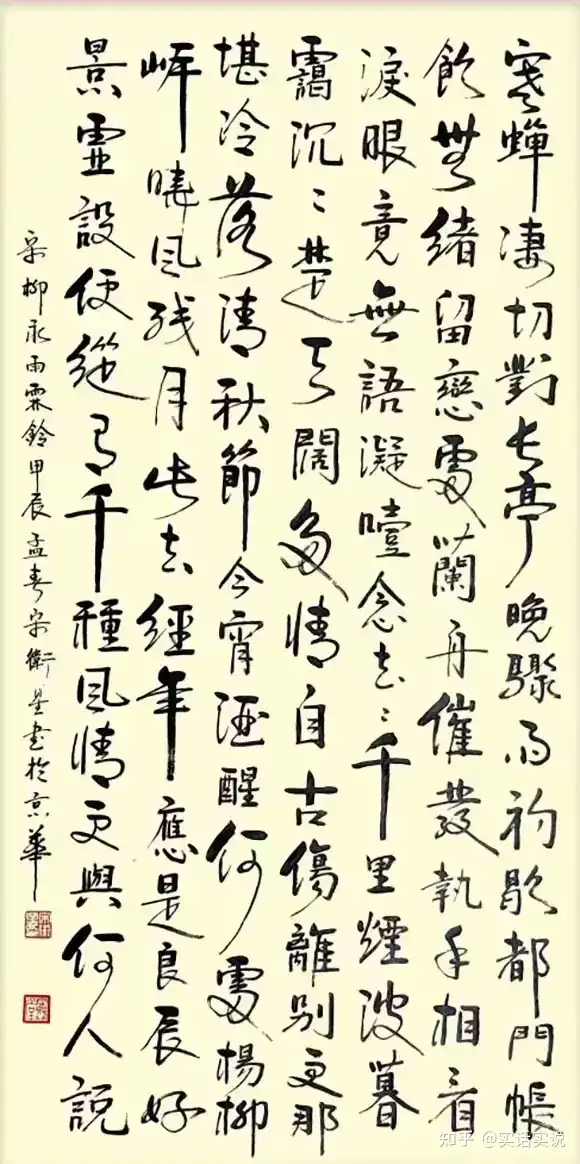 寒蟬凄切對長亭晚驟雨初歇都門帳
飲無緒留戀處蘭舟催發執手相看
淚眼竟無語凝噎念去々千里煙波暮
靄沉々楚天闊多情自古傷離別更那
堪冷落清秋節今宵酒醒何處楊柳
岸曉風残月此去經年應是良辰好
景虛設便縱有千種風情更與何人說
宋柳永雨霖鈴甲辰孟春宋衛星書於京華
知乎 @实话实说